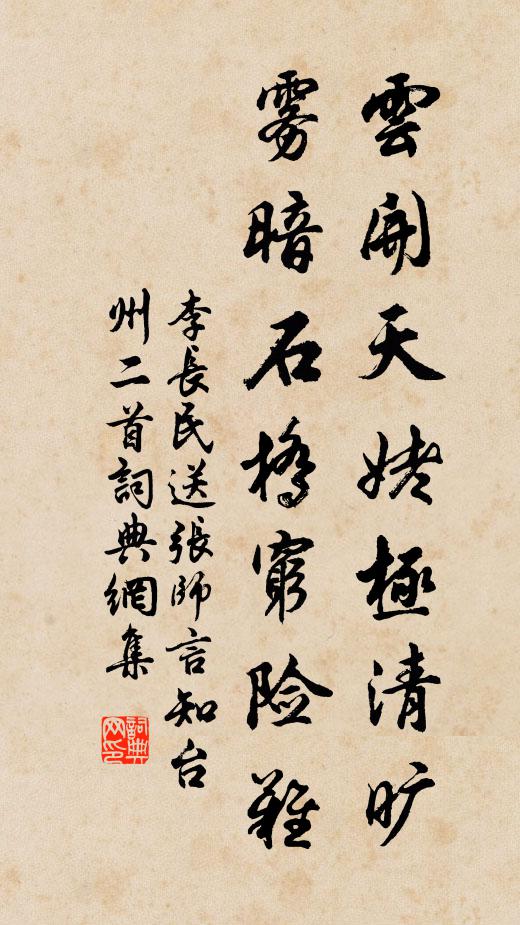 雲開天姥極清旷
雾暗石橋窮险難
李長民送張師言知台
州二首詞典網集
詞典网印